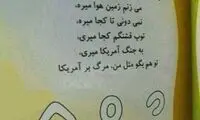 می زنم زمین هوا میره،
نمی دونی تا کجا میره،
توپ قشنگم کجا میری،
به جنگ آمریکا میری،
تو هم بگو مثل من، مرگ بر آمریکا